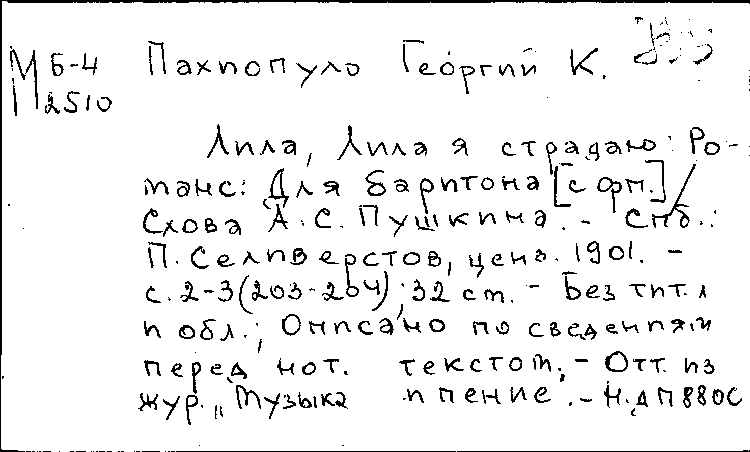 М Б-4 Пахпопуло Георгий К.
М 2510
Лила, Лила я страдаю: Ро-
манс: Для баритона [с фп.]
Слова А.С. Пушкина. - Спб.:
П. Селиверстов, ценз. 1901. -
с. 2-3 (203-204); 32 см. - Без тит. л
и обл.; Описано по сведениям
перед нот. текстом. - Отт. из
жур. „Музыка и пение". - Н.д П 880С